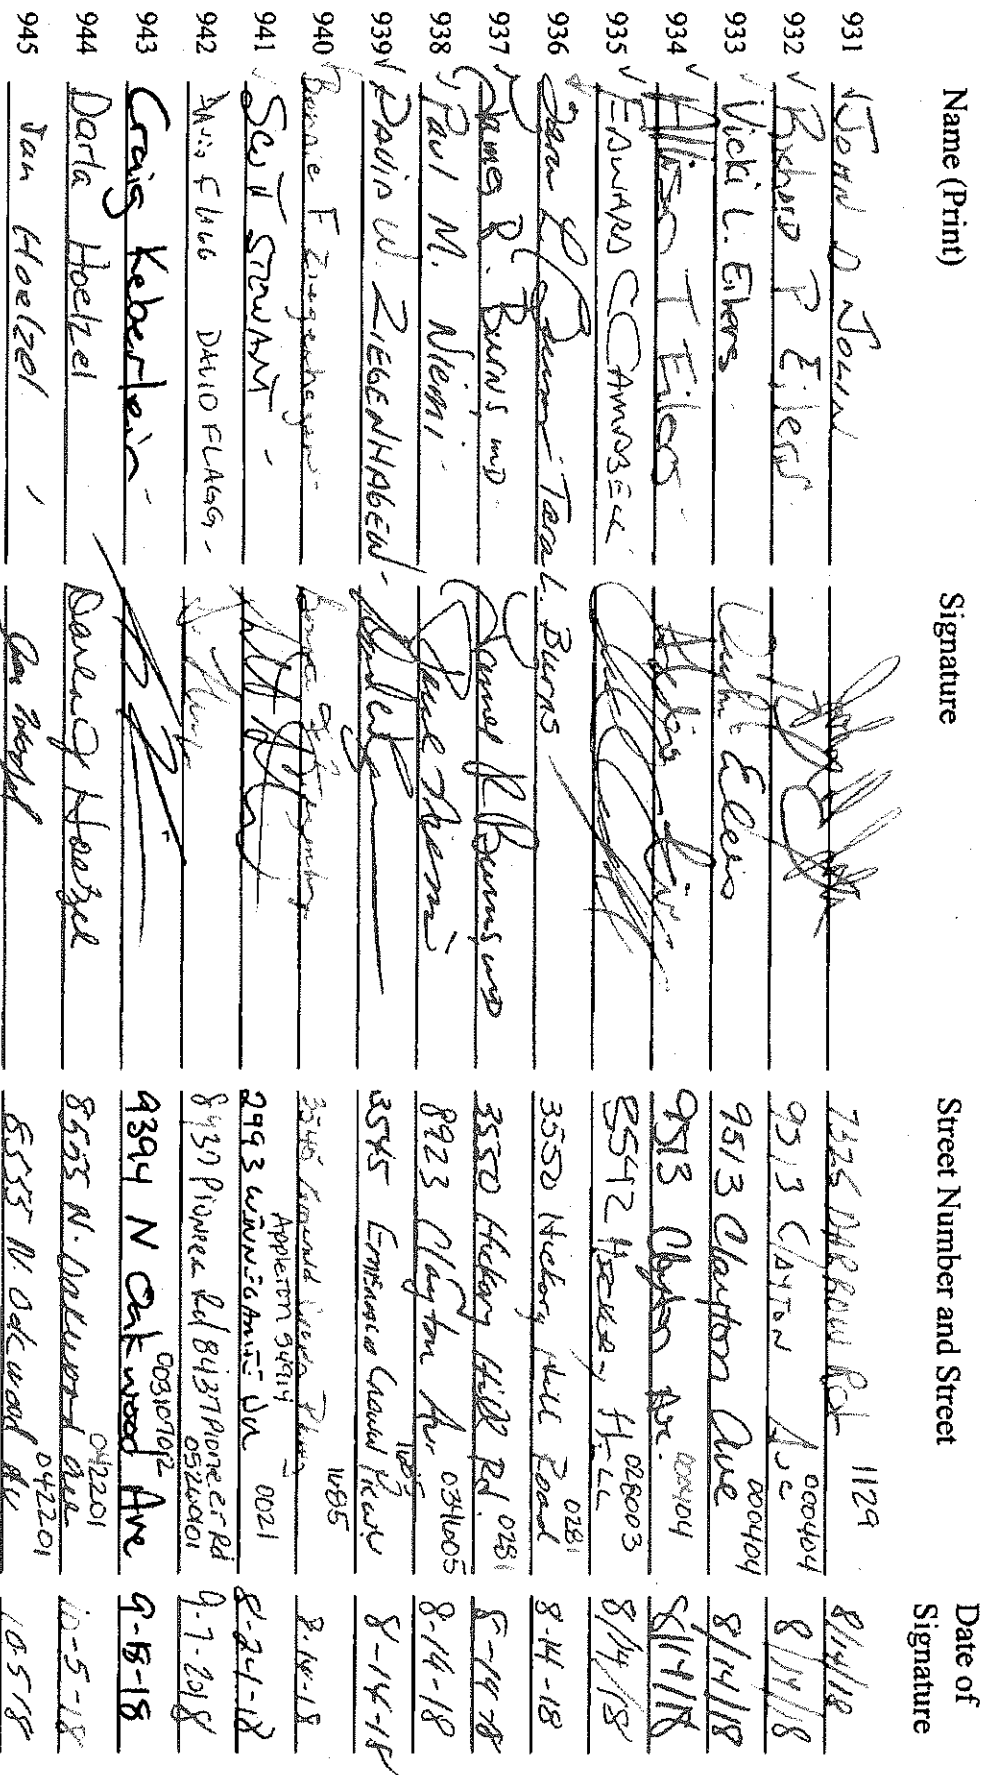 Name (Print) Signature Street Number and Street Date of Signature
931 ✓ JOHN D JOLIN 7325 DARROW Rd 1129 8/14/18
932 ✓ Richard P Eilers 9513 CLAYTON Ave 000404 8/14/18
933 ✓ Vicki L. Eilers Vicki L Eilers 9513 Clayton Ave 000404 8/14/18
934 ✓ Allison T Eilers 9513 Clayton Ave. 000404 8/14/18
935 ✓ EDWARD C CAMPBELL 8542 Hickory Hill 028003 8/14/18
936 ✓ Tara L. Burns Tara L. Burns 3550 Hickory Hill Road 0281 8-14-18
937 ✓ James R. Burns MD James R Burns MD 3550 Hickory Hill Rd. 0281 8-14-18
938 ✓ Paul M. Niemi Paul Niemi 8923 Clayton Av. 034605 8-14-18
939 ✓ DAVID W. ZIEGENHAGEN 3545 Emerald 1685 8-14-18
940 ✓ Bonnie F Ziegenhagen 3545 Emerald 1685 8-14-18
941 ✓ Scott STOWART 2993 Appleton 54914 0021 8-21-18
942 DAVID FLAGG 8437 Pioneer Rd 8437 Pioneer Rd 9-7-2018
943 Craig Keberlein 9394 N Oakwood Ave 9-18-18
944 Darla Hoelzel Hoelzel 8555 N. Oakwood Ave 042201 10-5-18
945 Jan Hoelzel 8555 N. Oakwood Av 042201 10-5-18